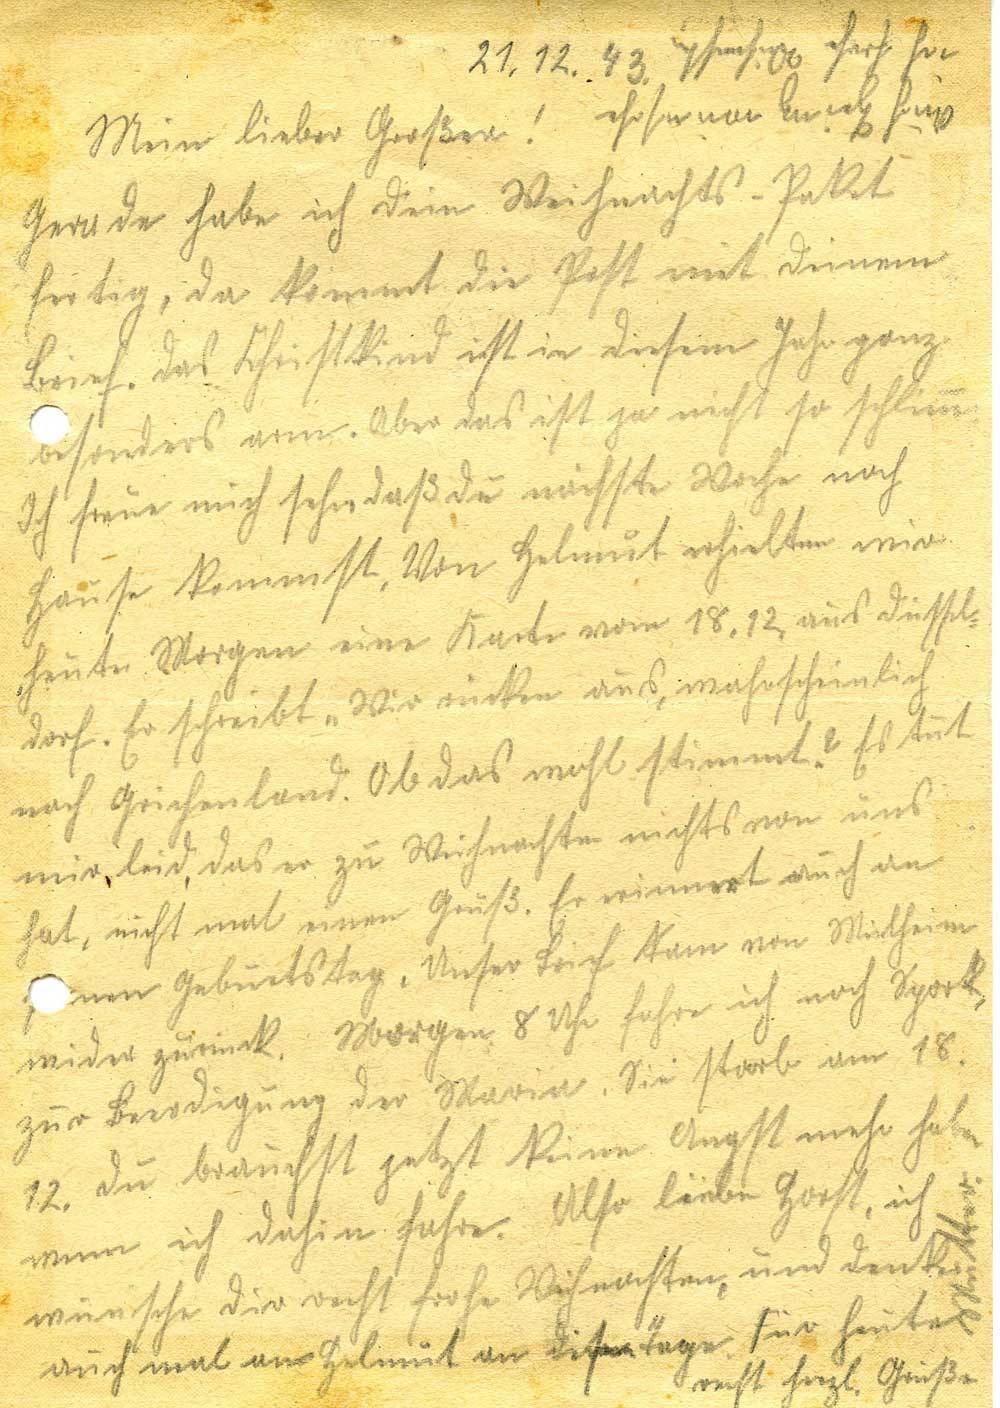 21.12.43.
Mein lieber Großer!
Gerade habe ich dein Weihnachts-Paket
fertig, da kommt die Post mit deinem
Brief. Das Christkind ist in diesem Jahr ganz
besonders arm. Aber das ist ja nicht so schlimm
Ich freue mich sehr daß du nächste Woche nach
Hause kommst. Von Helmut erhielten wir
heute Morgen eine Karte vom 18.12. aus Düssel-
dorf. Er schreibt „Wir rücken aus, wahrscheinlich
nach Grichenland. Ob das wohl stimmt? Es tut
mir leid, das er zu Weihnachten nichts von uns
hat, nicht mal einen Gruß. Er erinnert auch an
Geburtstag. Unser Brief kam von Mülheim
wider zurück. Morgen 8 Uhr fahre ich nach Spork,
zur Beerdigung der Maria. Sie starb am 18.
12. du brauchst jetzt keine Angst mehr haben
wenn ich dahin fahre. Also lieber Horst, ich
wünsche dir recht frohe Weihnachten, und denke
auch mal an Helmut an Tage. Für heute
recht herzl. Grüße
Mutter